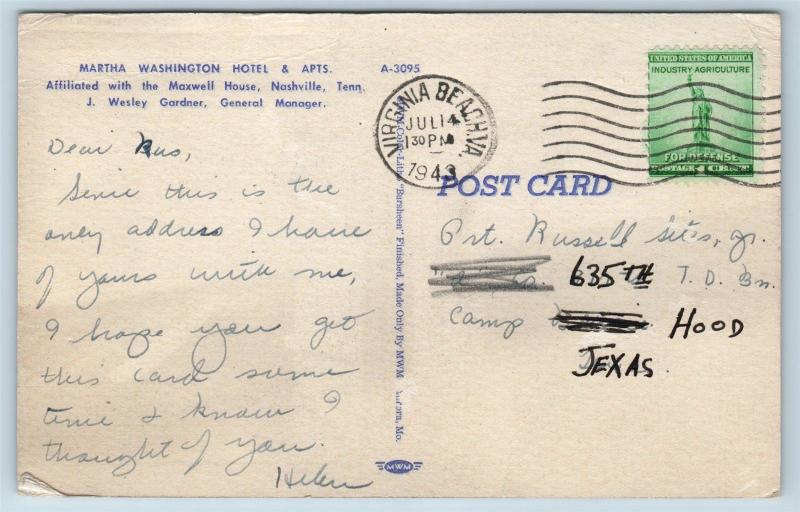 MARTHA WASHINGTON HOTEL & APTS.
Affiliated with the Maxwell House, Nashville, Tenn.
J. Wesley Gardner, General Manager.
A-3095
Dear Rus,
Since this is the
only address I have
of yours with me,
I hope you get
this card some
time & know I
thought of you.
Helen
"Bursheen" Finished, Made Only By MWM
Mo.
MWM
VIRGINIA BEACH, VA.
JUL 14
130 PM
1943
UNITED STATES OF AMERICA
INDUSTRY·AGRICULTURE
FOR DEFENSE
POSTAGE 1 CENT
POST CARD
Pvt. Russell Sites, Jr.
635TH T.D. Bn.
Camp HOOD
TEXAS